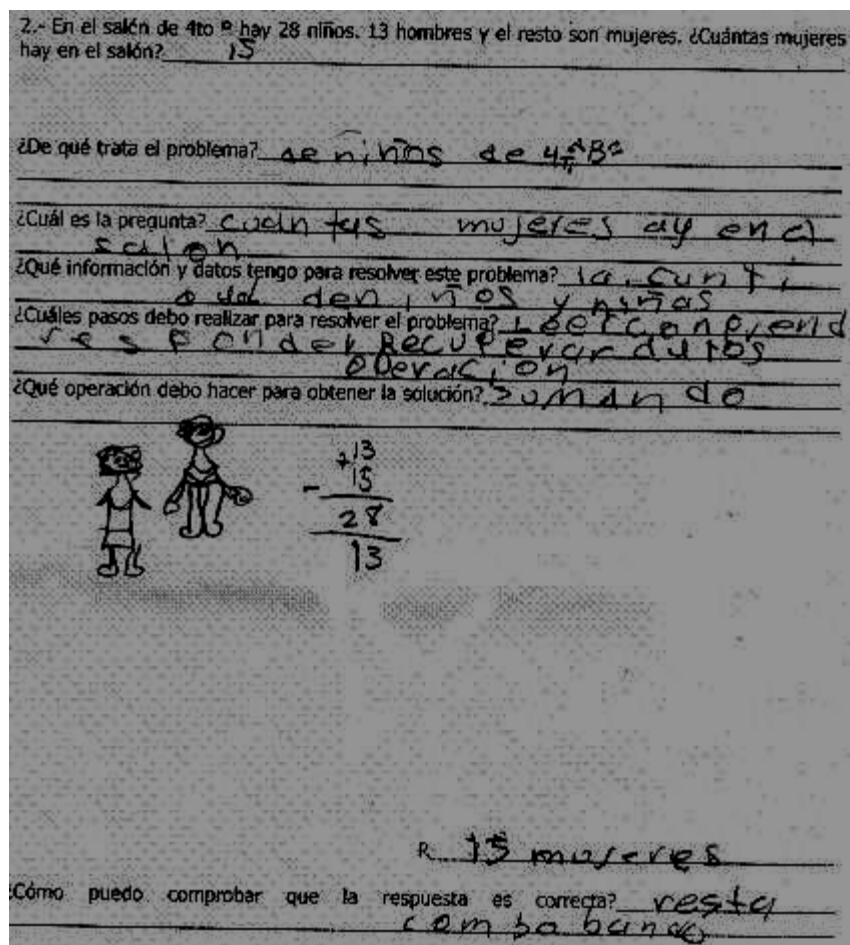 2.- En el salón de 4to B hay 28 niños. 13 hombres y el resto son mujeres. ¿Cuántas mujeres
hay en el salón? 15
¿De qué trata el problema? de niños de 4
¿Cuál es la pregunta? cuan tas mujeres ay en el
salon
¿Qué información y datos tengo para resolver este problema? la cunti
den i ños y niñas
¿Cuáles pasos debo realizar para resolver el problema?
res ponder Recuperar dutos
operacion
¿Qué operación debo hacer para obtener la solución? sumando
+13
- 15
28
13
R. 15 mujeres
¿Cómo puedo comprobar que la respuesta es correcta? resta